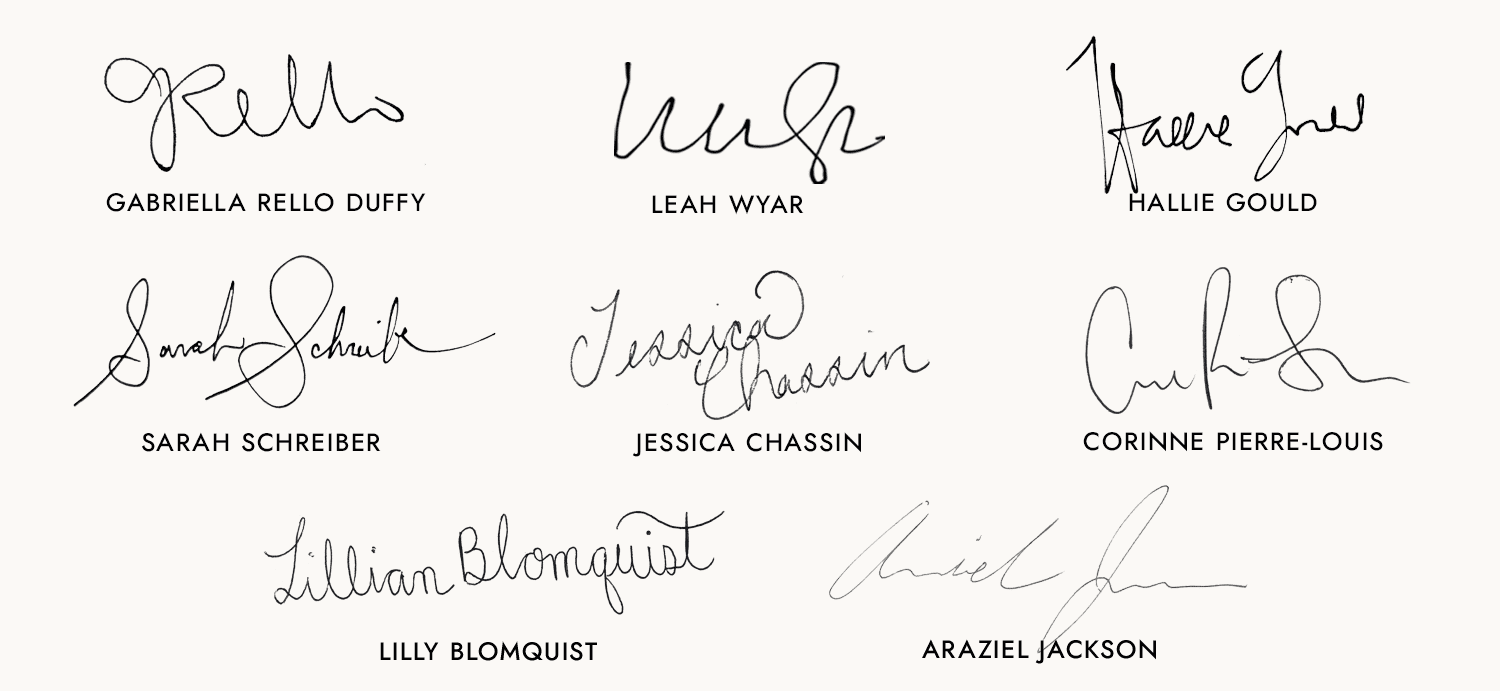 GRello
GABRIELLA RELLO DUFFY
LEAH WYAR
Hallie Gould
HALLIE GOULD
Sarah Schreiber
SARAH SCHREIBER
Jessica
Chassin
JESSICA CHASSIN
CORINNE PIERRE-LOUIS
Lillian Blomquist
LILLY BLOMQUIST
ARAZIEL JACKSON